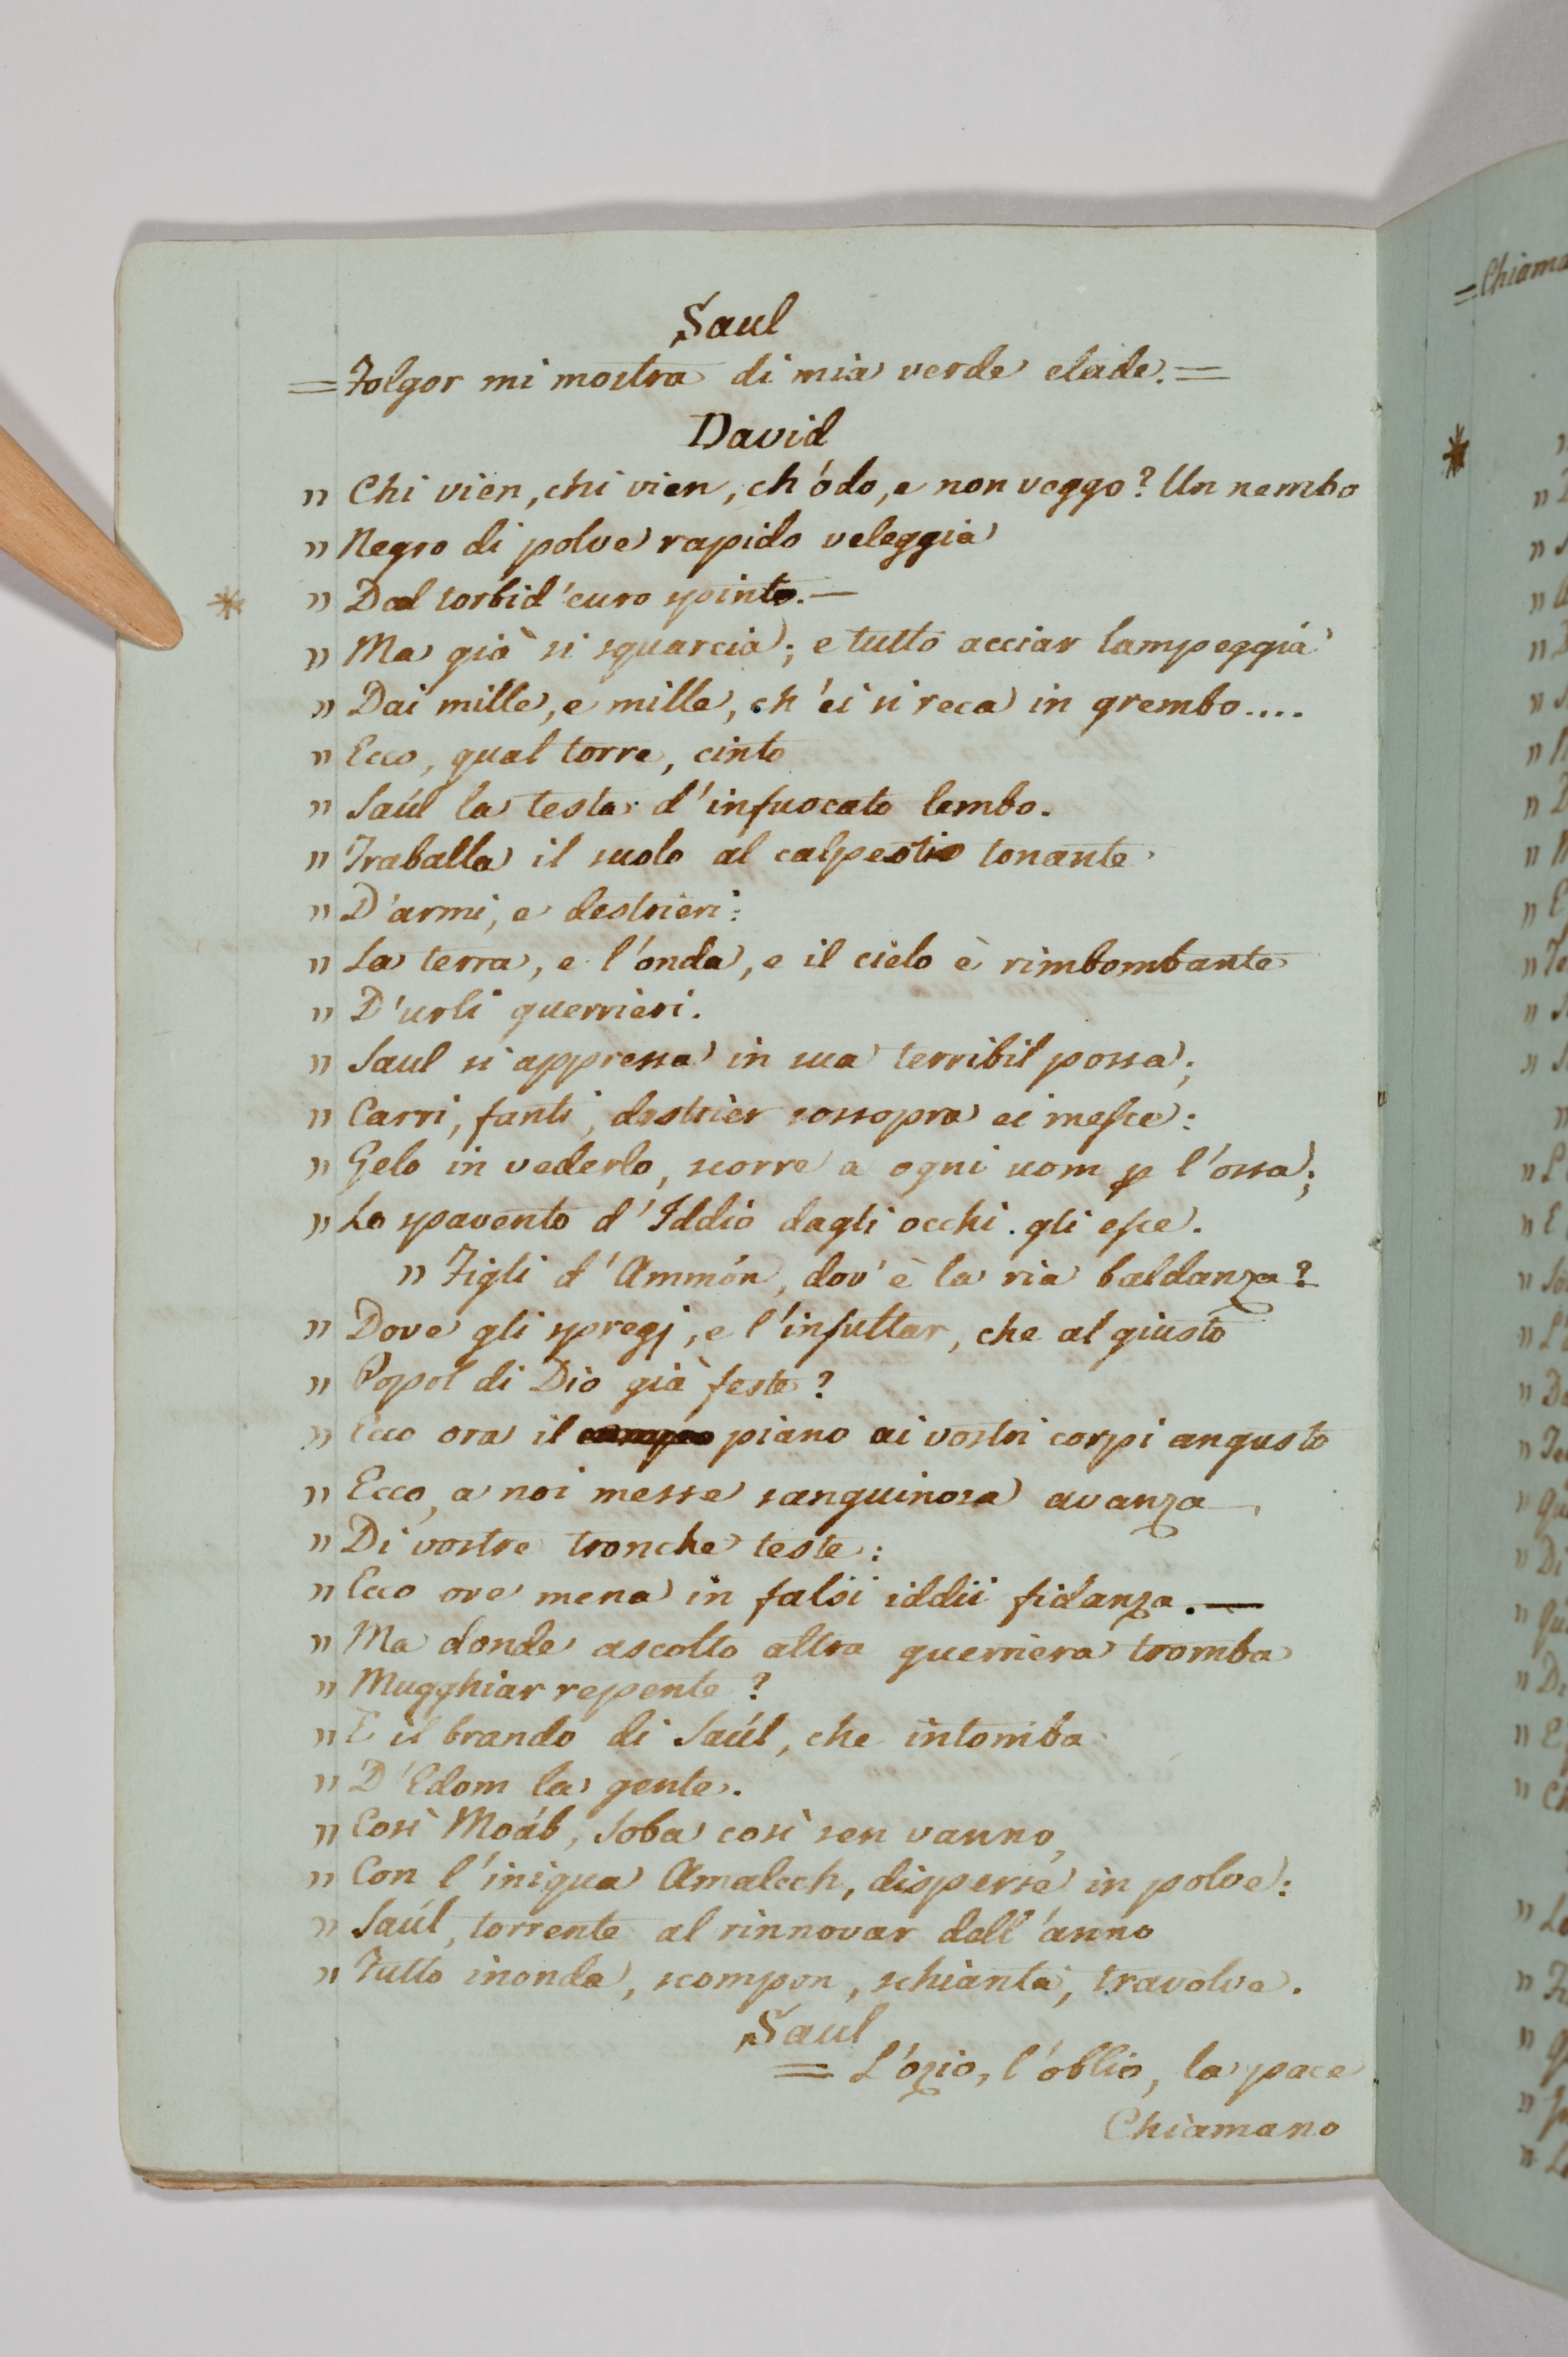 Saul
= Folgor mi mostra di mia verde etade. =
David
" Chi vien, chi vien, ch'ódo, e non veggo? Un nembo
" Negro di polve rapido veleggia
* " Dal torbid'euro spinto. —
" Ma già si squarcia; e tutto acciar lampeggia
" Dai mille, e mille, ch'ei si reca in grembo....
" Ecco, qual torre, cinto
" Saúl la testa d'infuocato lembo.
" Traballa il suolo al calpestio tonante
" D'armi, e destrieri:
" La terra, e l'onda, e il cielo è rimbombante
" D'urli guerrieri.
" Saul si appressa in sua terribil possa;
" Carri, fanti, destrier sossopra ei mesce:
" Gelo in vederlo, scorre a ogni uom p l'ossa;
" Lo spavento d'Iddio dagli occhi gli esce.
" Figli d'Ammón, dov'è la ria baldanza?
" Dove gli spregj, e l'insultar, che al giusto
" Popol di Dio già feste?
" Ecco ora il piano ai vostri corpi angusto
" Ecco, a noi messe sanguinosa avanza
" Di vostre tronche teste:
" Ecco ove mena in falsi iddii fidanza. —
" Ma donde ascolto altra guerriera tromba
" Mugghiar repente?
" E il brando di Saúl, che intomba
" D'Edom la gente.
" Così Moáb, Soba così sen vanno,
" Con l'iniqua Amalech, disperse in polve:
" Saúl, torrente al rinnovar dell'anno
" Tutto inonda, scompon, schianta, travolve.
Saul
= L'ozio, l'oblio, la pace
Chiamano
= Chiama
*